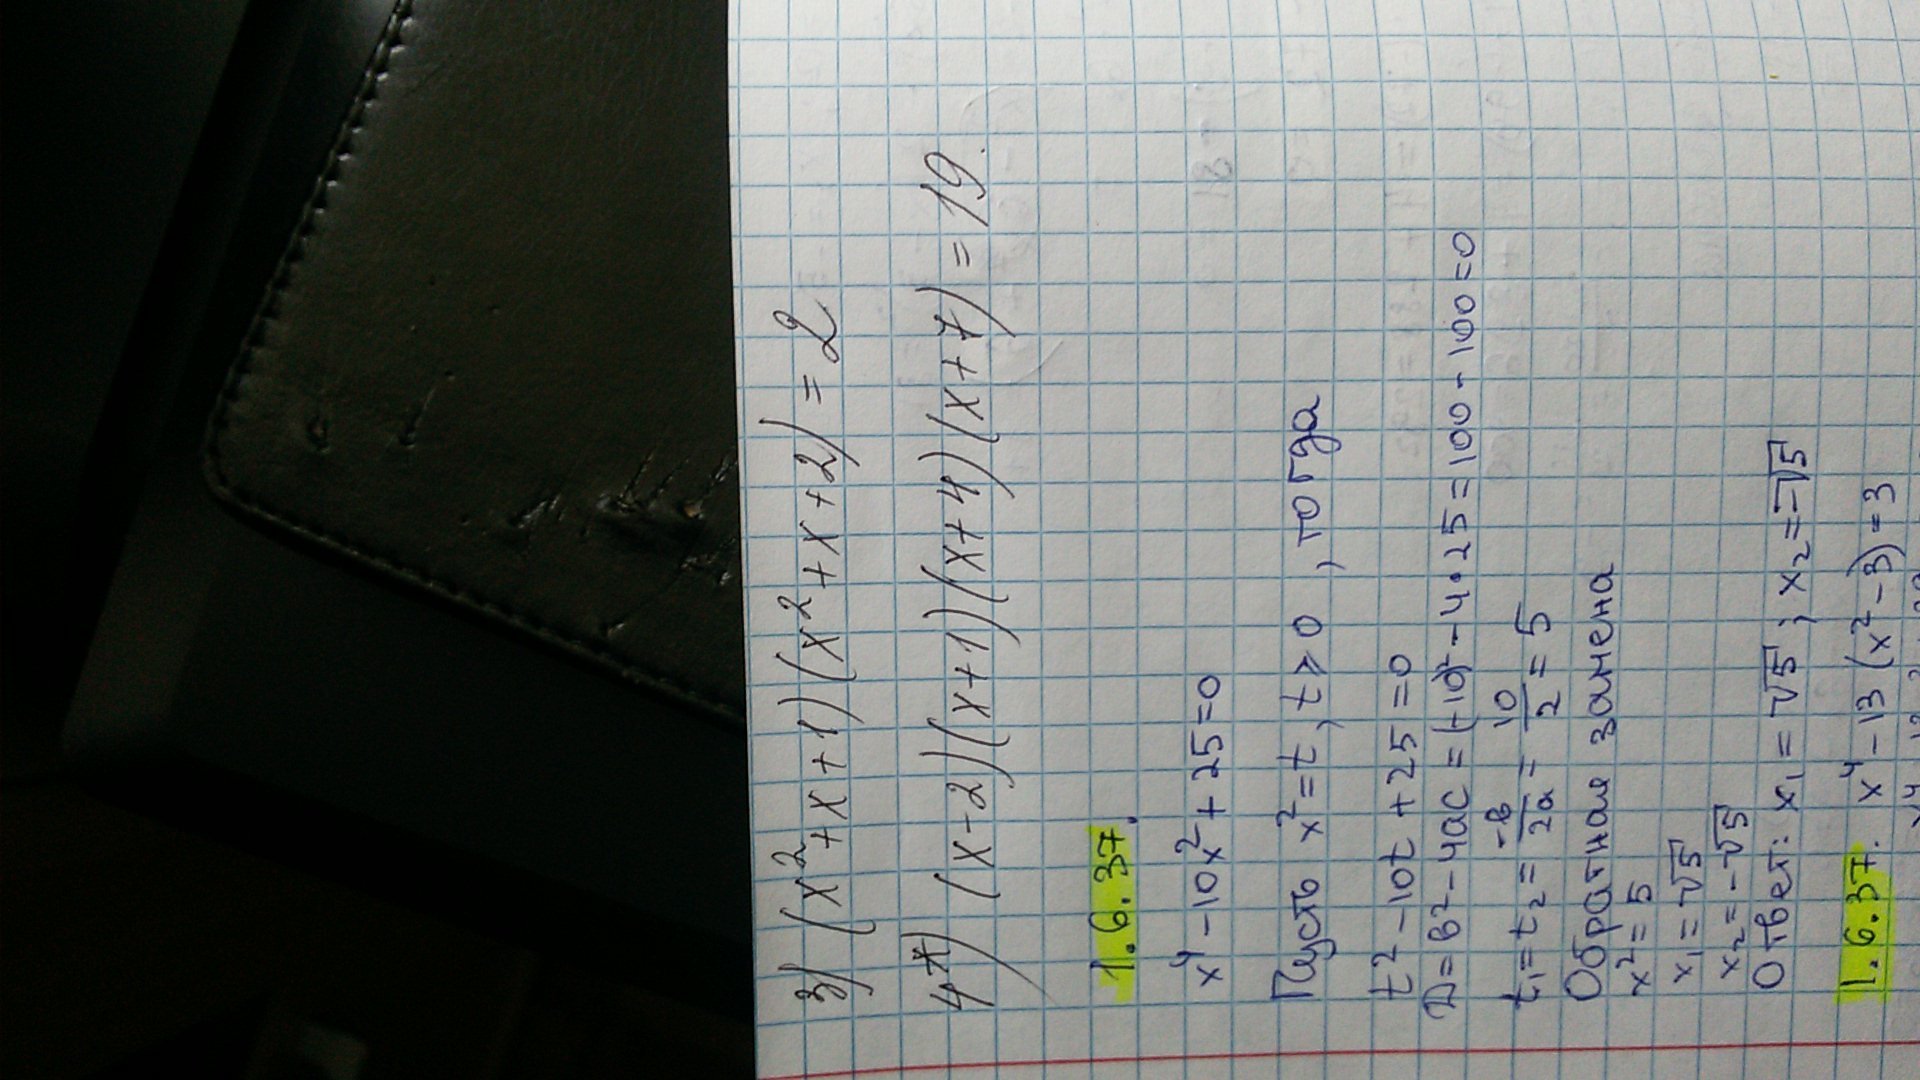 3) (x²+x+1)(x²+x+2)=2
4*) (x-2)(x+1)(x+4)(x+7)=19.
1.6.37.
x⁴-10x²+25=0
Пусть x²=t, t≥0, тогда
t²-10t+25=0
D=в²-4ас=(-10)²-4•25=100-100=0
t₁=t₂=-в/2а=10/2=5
Обратная замена
x²=5
x₁=√5
x₂=-√5
Ответ: x₁=√5; x₂=-√5
1.6.37. x⁴-13(x²-3)=3